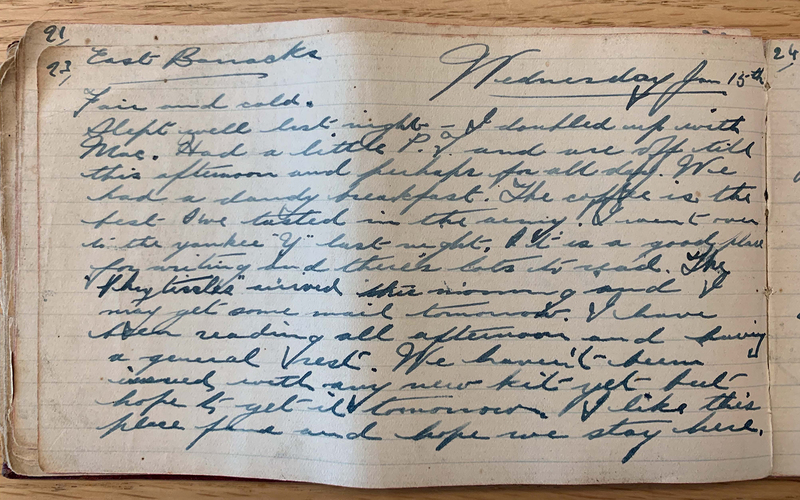 21,
23, East Barracks
Wednesday Jan 15th
24
Fair and cold.
Slept well last night - I doubled up with
Mac. Had a little P.T. and are off till
this afternoon and perhaps for all day. We
had a dandy breakfast. The coffee is the
best I've tasted in the army. I went over
to the yankee "Y" last night. It is a good place
for writing and there's lots to read. The
arrived this morning and I
may get some mail tomorrow. I have
been reading all afternoon and having
a general rest. We haven't been
issued with any new kit yet but
hope to get it tomorrow. I like this
place fine and hope we stay here.